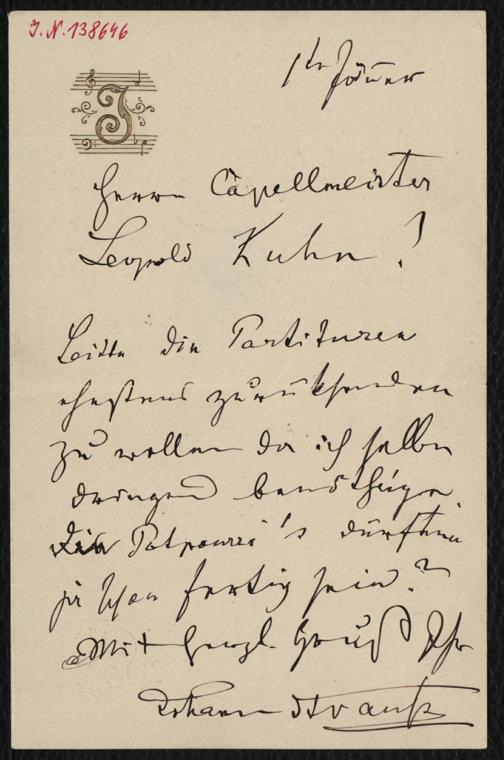 J.N.138646
J
1te Jänner
Herrn Capellmeister
Leopold Kuhn!
Bitte die Partituren
ehestens zurüksenden
zu wollen da ich selbe
dringend benöthige
die Potpourri's dürften
ja schon fertig sein?
Mit herzl. Gruß Ihr
Johann Strauß